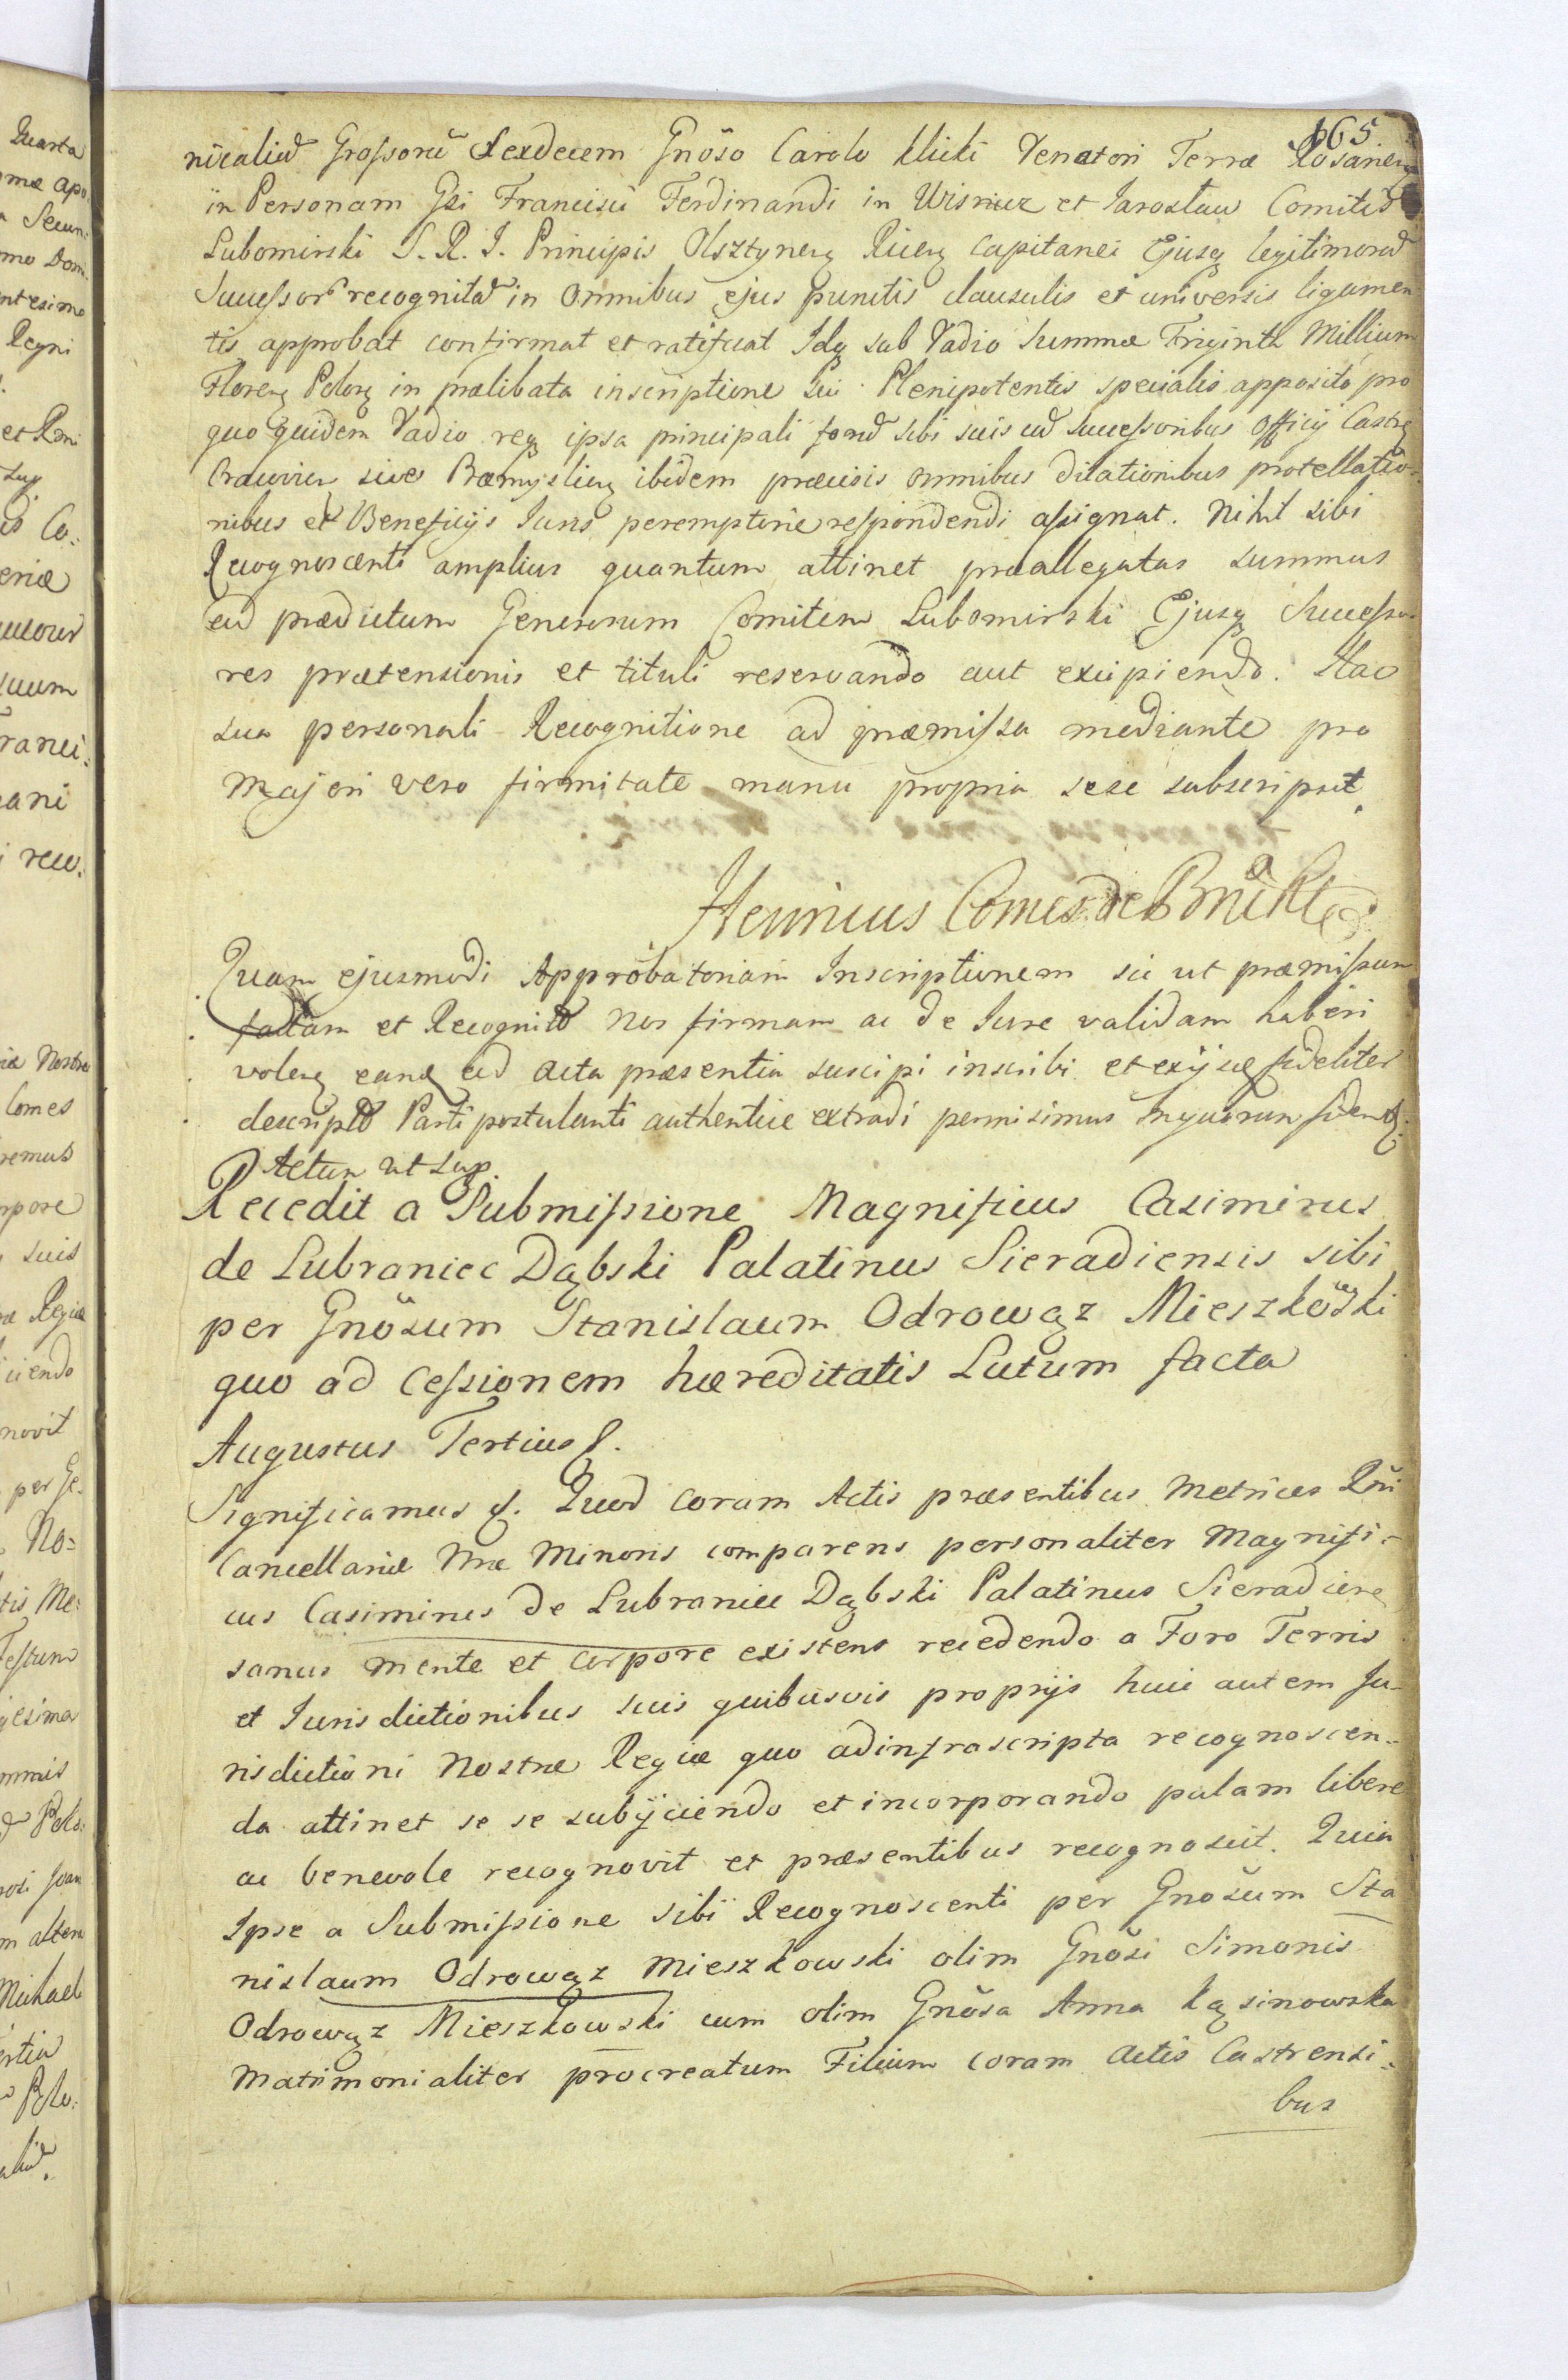 165
nicaliũ Grossorũ Sexdecem Gnõso Carolo Klicki Venatori Terræ Rosaneñ
in Personam Gsi Francisci Ferdinandi in Wisnicz et Jarosław Comitis
Lubomirski S. R. I. Principis Olsztyneñ Riceñ Capitanei Ejusq legitimorũ
Successorũ recognitã in omnibus ejus punctis clausulis et universis ligamen
tis approbat confirmat et ratificat Idq sub Vadio Summæ Triginta Millium
Floreñ Poloñ in prælibata inscriptione sui Plenipotentis specialis apposito pro
quo quidem Vadio req ipsa principali forũ sibi suis ad Successoribus Officij Castreñ
Cracovieñ sive Præmyslieñ ibidem præcisis omnibus dilationibus protellatio=
nibus et Beneficijs Juris peremptorie respondendi assignat. Nihil sibi
Recognoscenti amplius quantum attinet præallegatas summas
ad prædictum Generosum Comitem Lubomirski Ejusq Successo
res prætensionis et tituli reservando aut excipiendo. Hac
sua personali Recognitione ad præmissa mediante pro
majori vero firmitate manu propria sese subscripsit.
Henricus Comes de Brühl
Quam ejusmodi Approbatoriam Inscriptionem sic ut præmissum
factam et Recognitã Nos firmam ac de Jure validam haberi
voleñ eanq ad Acta præsentia suscipi inscribi et exijsdẽ fideliter
descriptã Parti postulanti authentice extradi permisimus Inquorum fidem &.
Actum ut sup.
Recedit a Submissione Magnificus Casimirus
de Lubraniec Dąbski Palatinus Sieradiensis sibi
per Gnõsum Stanislaum Odrowąz Mieszkowski
quo ad Cessionem hæreditatis Lutum facta
Augustus Tertius &.
Significamus &. Quod coram Actis præsentibus Metrices Rñi
Cancellariæ Nræ Minoris comparens personaliter Magnifi=
cus Casimirus de Lubraniec Dąbski Palatinus Sieradieñ
sanus mente et corpore existens recedendo a Foro Terris
et Jurisdictionibus suis quibusvis proprijs huic autem Ju
risdictioni Nostræ Regiæ quo adinfrascripta recognoscen=
da attinet se se subijciendo et incorporando palam libere
ac benevole recognovit et præsentibus recognoscit. Quia
Ipse a Submissione sibi Recognoscenti per Gnosum Sta
nislaum Odrowąz Mieszkowski olim Gnõsi Simonis
Odrowąz Mieszkowski cum olim Gnõsa Anna Kąsinowska
Matrimonialiter procreatum Filium coram Actis Castrensi=
bus